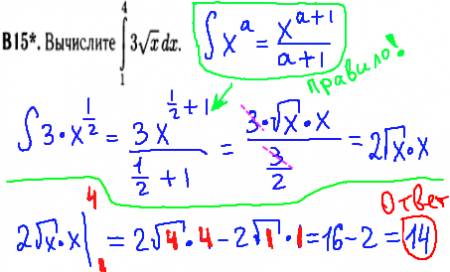 В15*. Вычислите ∫₁⁴ 3√x dx.
∫ x^a = x^(a+1) / (a+1)
правило!
∫ 3·x^(1/2) = 3x^(1/2+1) / (1/2+1) = 3·√x·x / (3/2) = 2√x·x
Ответ
2√x·x |₁⁴ = 2√4·4 − 2√1·1 = 16 − 2 = 14